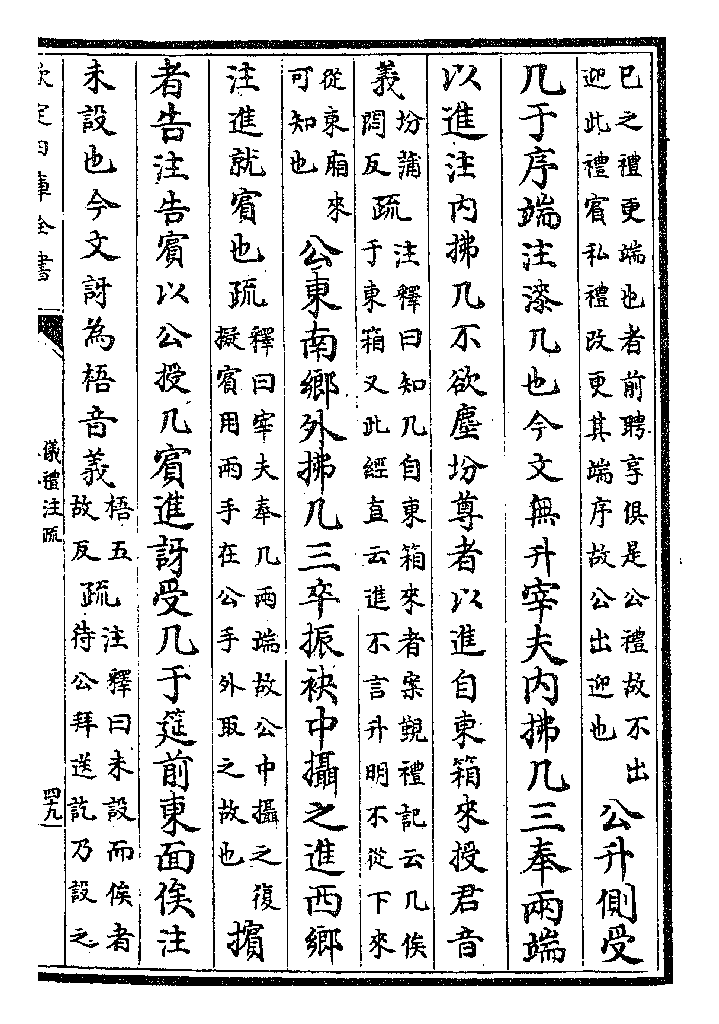 巳之禮更端也者前聘享俱是公禮故不出
迎此禮賓私禮改更其端序故公出迎也
公升側受
几于序端注漆几也今文無升宰夫内拂几三奉兩端
以進注内拂几不欲塵坋尊者以進自東箱來授君音
義
坋蒲
悶反
疏
注釋曰知几自東箱來者案覿禮記云几俟
于東箱又此經直云進不言升明不從下來
從東廂來
可知也
公東南鄉外拂几三卒振袂中攝之進西鄉
注進就賓也疏
釋曰宰夫奉几兩端故公中攝之復
擬賓用兩手在公手外取之故也
擯
者告注告賓以公授几賓進訝受几于筵前東面俟注
未設也今文訝為梧音義
梧五
故反
疏
注釋曰未設而俟者
待公拜送訖乃設之
欽定四庫全書
儀禮注疏
四九